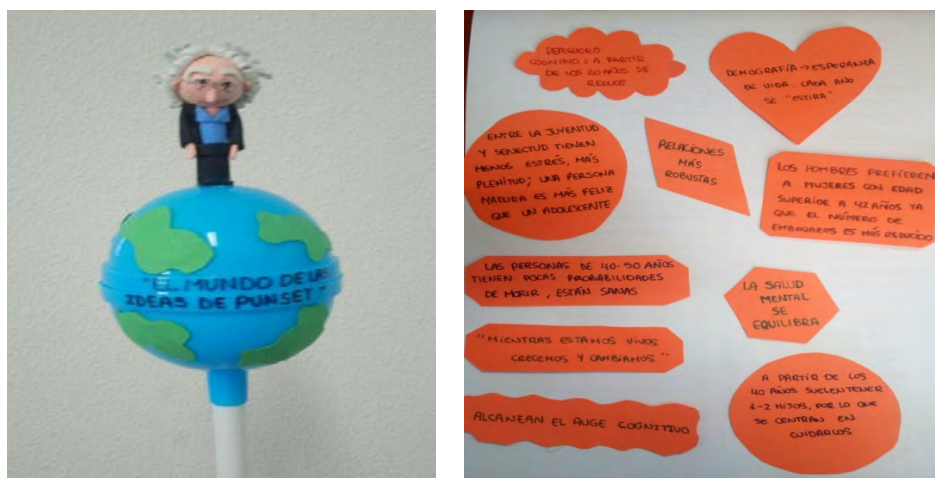 "EL MUNDO DE LAS
IDEAS DE PUNSET"
DETERIORO
COGNITIVO: A PARTIR
DE LOS 20 AÑOS SE
REDUCE
DEMOGRAFÍA → ESPERANZA
DE VIDA: CADA AÑO
SE "ESTIRA"
ENTRE LA JUVENTUD
Y SENECTUD TIENEN
MENOS ESTRÉS, MÁS
PLENITUD; UNA PERSONA
MADURA ES MÁS FELIZ
QUE UN ADOLESCENTE
RELACIONES
MÁS
ROBUSTAS
LOS HOMBRES PREFIEREN
A MUJERES CON EDAD
SUPERIOR A 42 AÑOS YA
QUE EL NÚMERO DE
EMBARAZOS ES MÁS REDUCIDO
LAS PERSONAS DE 40-50 AÑOS
TIENEN POCAS PROBABILIDADES
DE MORIR, ESTÁN SANAS
LA SALUD
MENTAL
SE
EQUILIBRA
"MIENTRAS ESTAMOS VIVOS
CRECEMOS Y CAMBIAMOS"
A PARTIR DE LOS
40 AÑOS SUELEN TENER
1-2 HIJOS, POR LO QUE
SE CENTRAN EN
CUIDARLOS
ALCANZAN EL AUGE COGNITIVO